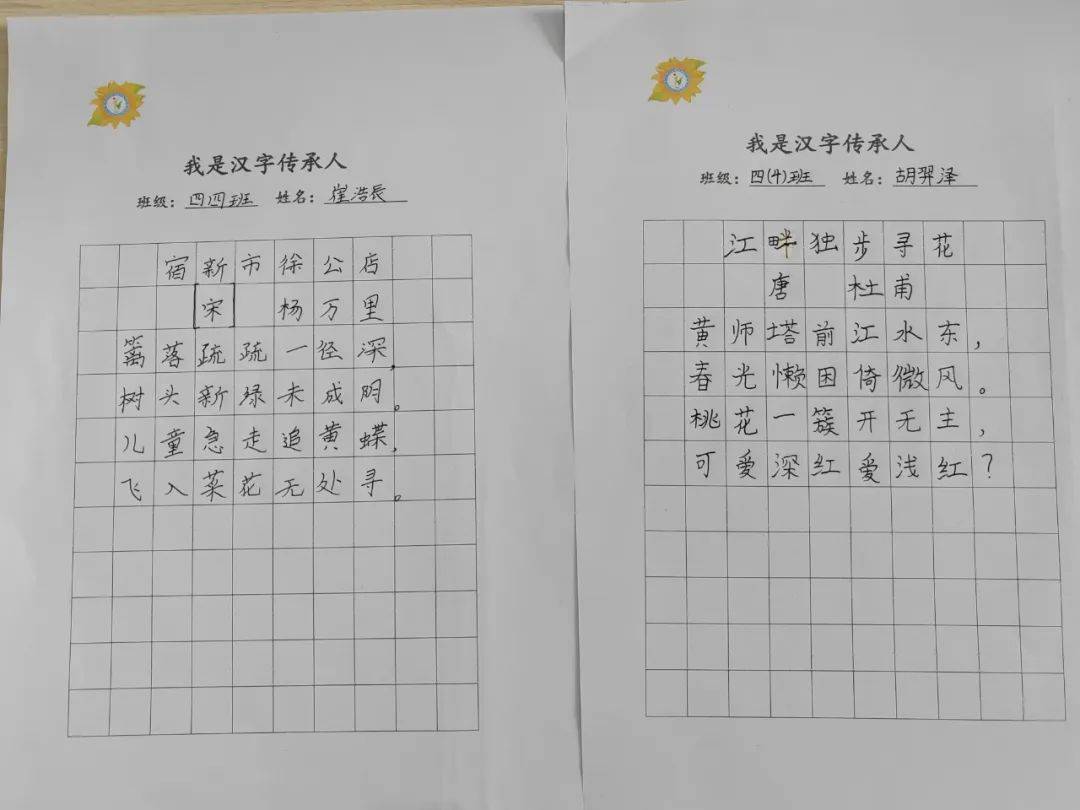 我是汉字传承人
班级：四四班 姓名：崔浩辰
宿新市徐公店
[宋] 杨万里
篱落疏疏一径深，
树头新绿未成阴。
儿童急走追黄蝶，
飞入菜花无处寻。
我是汉字传承人
班级：四(4)班 姓名：胡羿泽
江畔独步寻花
唐 杜甫
黄师塔前江水东，
春光懒困倚微风。
桃花一簇开无主，
可爱深红爱浅红？